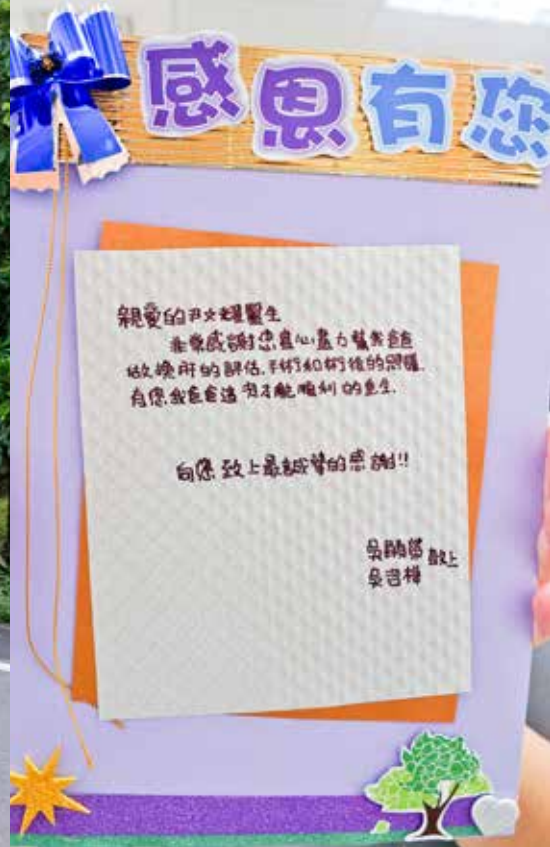 感恩有您
親愛的尹文耀醫生
非常感謝您盡心盡力幫我爸爸
做換肝的評估、手術和術後的照護.
有您我爸爸這次才能順利的重生.
向您致上最誠摯的感謝!!
吳 敬上
吳